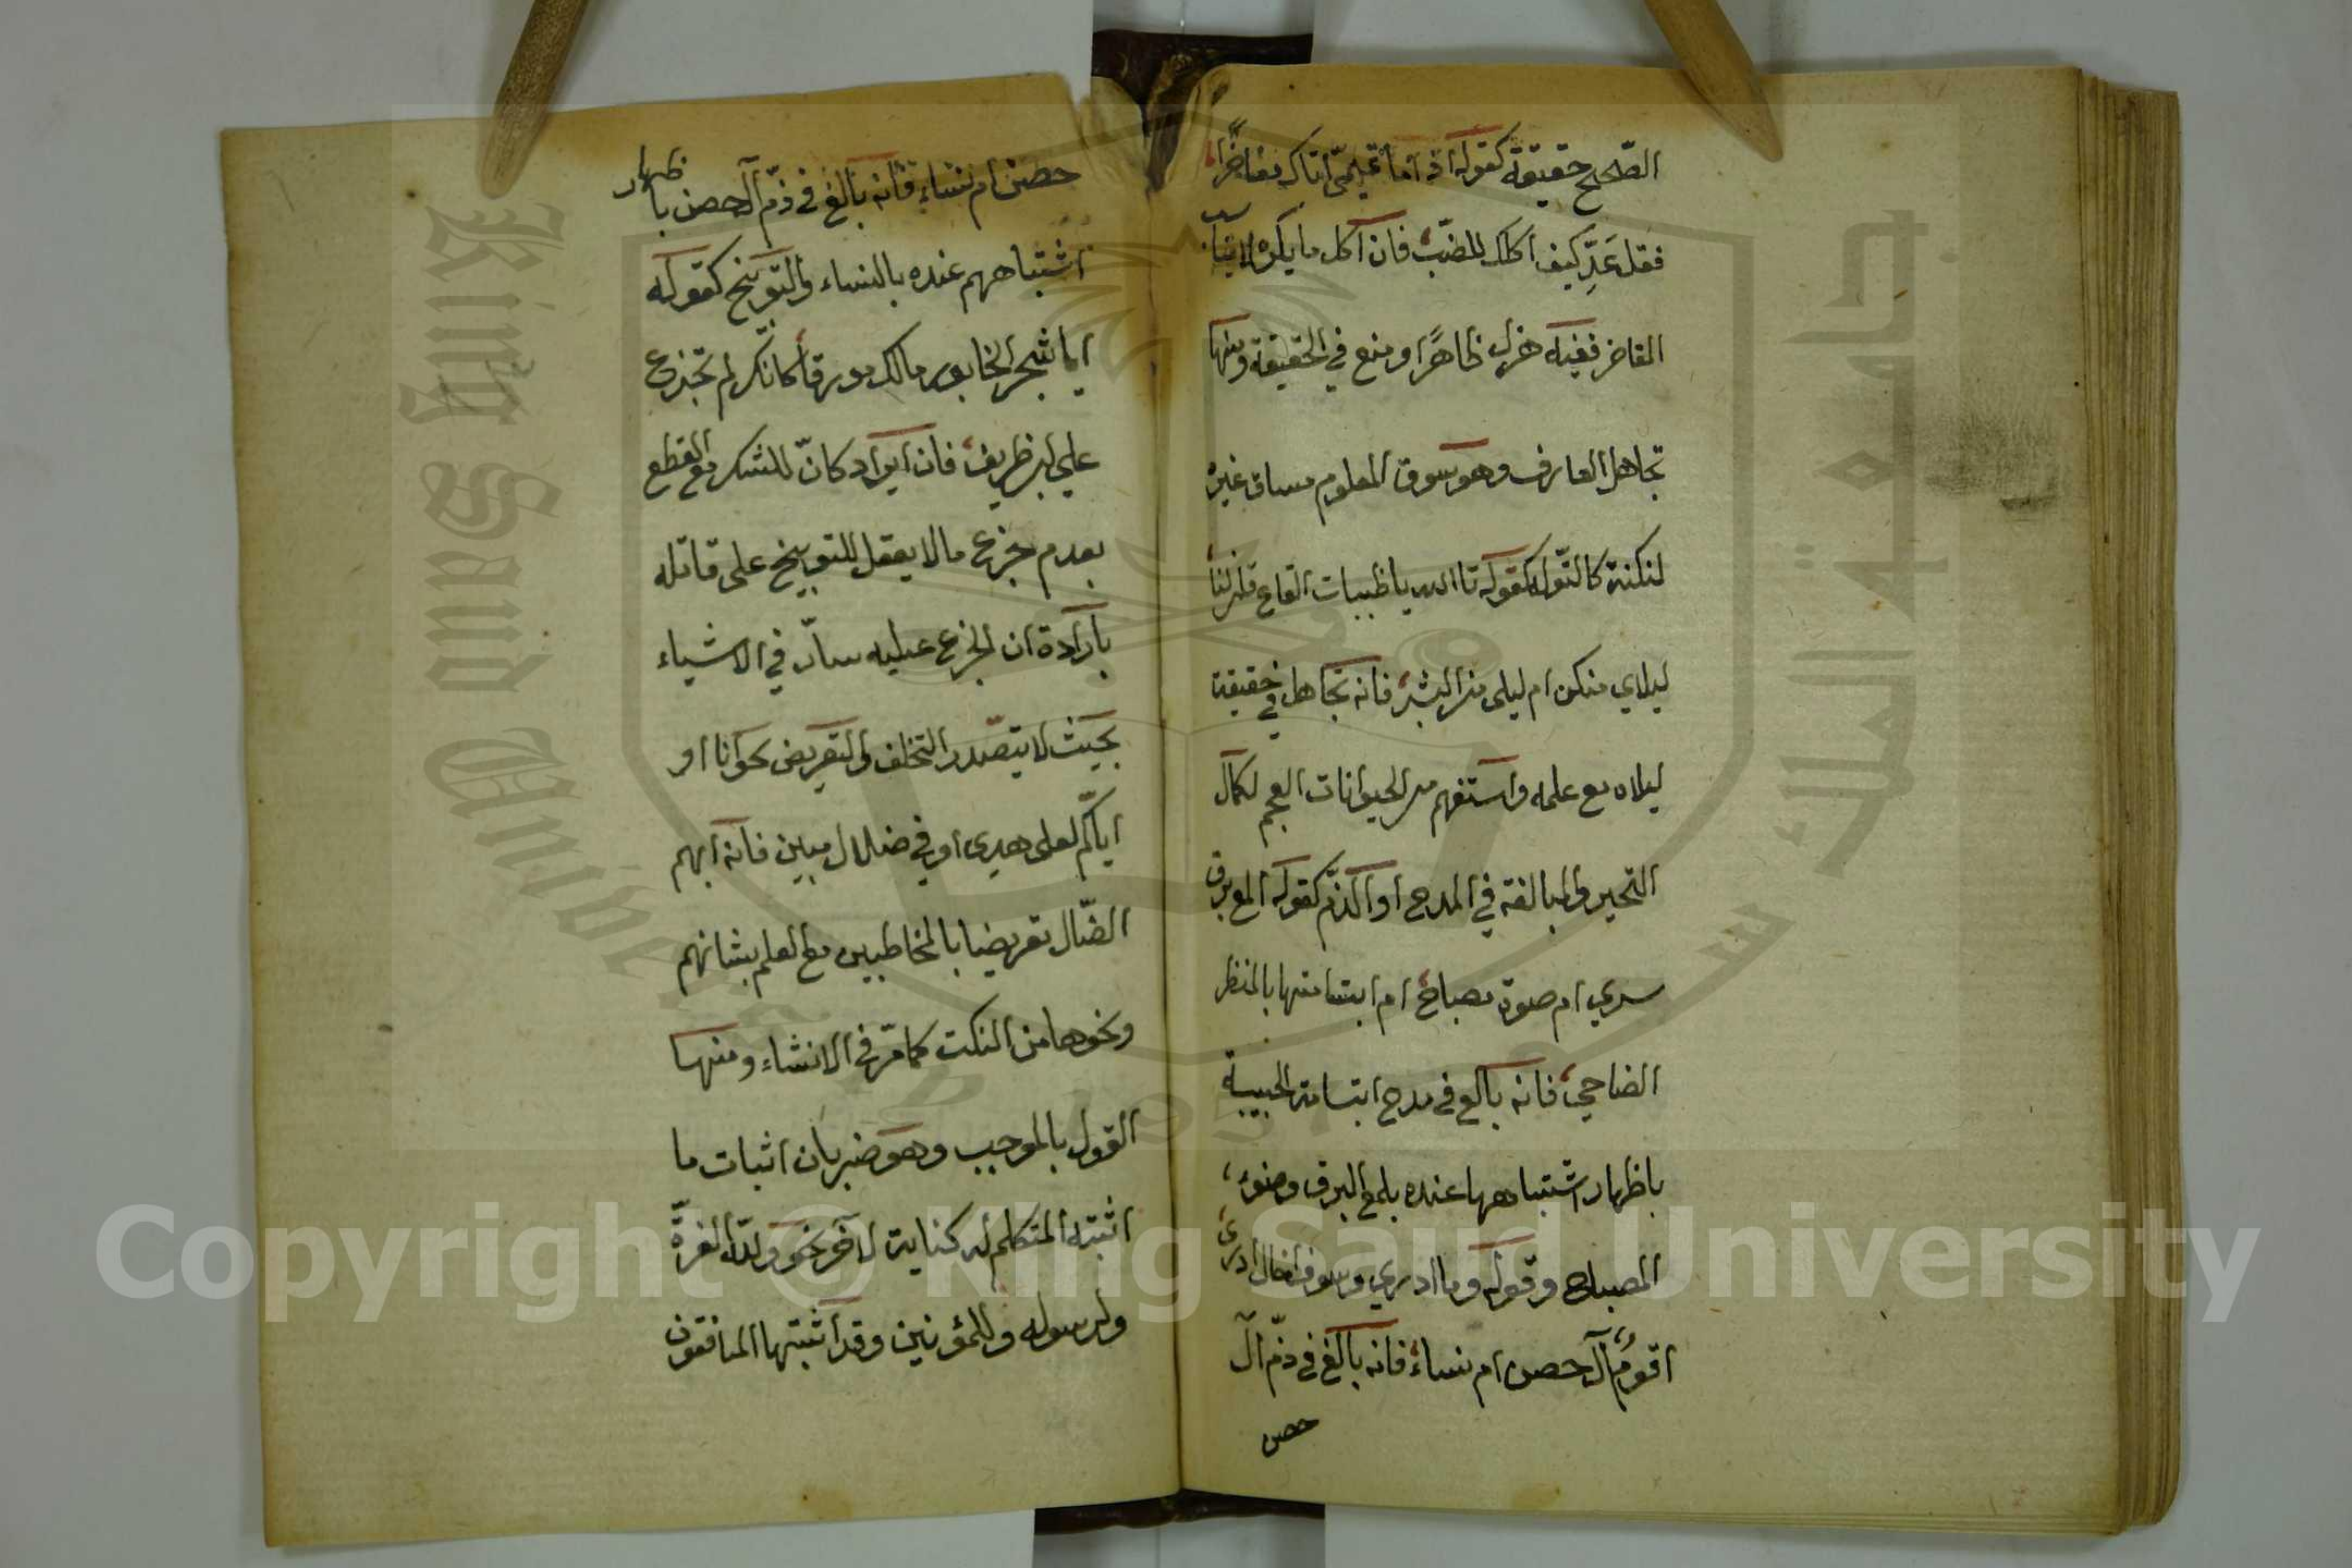 الصّحيح حقيقة كقوله اذا ما تميمىّ اتاك مفاخرًا
فقل عَدِّ كيف اكلك للضبّ فان اكل ما يكره لا يناسب
المفاخر ففيه هزل ظاهرًا ومنع في الحقيقة ومنها
تجاهل العارف وهو سوق المعلوم مساق غيره
لنكتة كالتّوله كقوله تا الله يا ظبيات القاع قلن لنا
ليلاي منكن ام ليلى من البشر فانه تجاهل في حقيقة
ليلاه مع علمه واستفهم من الحيوانات العجم لكمال
التحير والمبالغة في المدح او الذمّ كقوله المع برق
سري ام صوة مصباح ام ابتسامتها بالمنظر
الضاحي فانه بالغ في مدح ابتسامة الحبيبة
باظهار اشتباهها عنده بلمع البرق وضوء
المصباح وقوله وما ادري وسوف اخال ادرى
اقومٌ آل حصن ام نساء فانه بالغ في ذمّ آل
حصن
حصن ام نساء فانه بالغ في ذمّ آل حصن باظهار
اشتباههم عنده بالنساء والتوبيخ كقوله
ايا شجر الخابور مالك مورقا كانّك لم تجزع
علي ابن ظريف فان ايراد كانّ للشك مع القطع
بعدم جزع ما لا يعقل للتوبيخ على قاتله
بارادة ان الجزع عليه سارّ في الاشياء
بحيث لا يتصّدر التخلف والتعريض نحو انا او
ايّاكم لعلى هدى او في ضلال مبين فانه ابهم
الضّال تعريضا بالمخاطبين مع العلم بشانهم
ونحوها من النكت كما مرّ في الانشاء ومنها
القول بالموجب وهو ضربان اثبات ما
اثبته المتكلم له كناية لآخر نحو ولله العزّة
ولرسوله وللمؤمنين وقد اثبتها المنافقون
Copyright © King Saud University
King Saud University 1957
جامعة الملك سعود